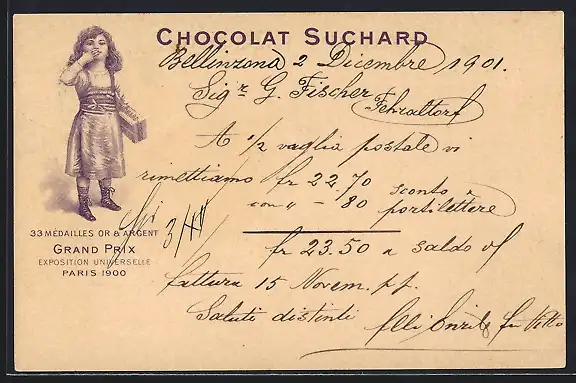 CHOCOLAT SUCHARD
Bellinzona 2 Dicembre 1901.
Sigr G. Fischer
Fehraltorf
A ½ vaglia postale vi
rimettiamo fr 22.70
con " - 80
sconto e
portilettere
fr 23.50 a saldo vs/
fattura 15 Novem. p.p.
Saluti distinti
flli
33 MÉDAILLES OR & ARGENT
GRAND PRIX
EXPOSITION UNIVERSELLE
PARIS 1900